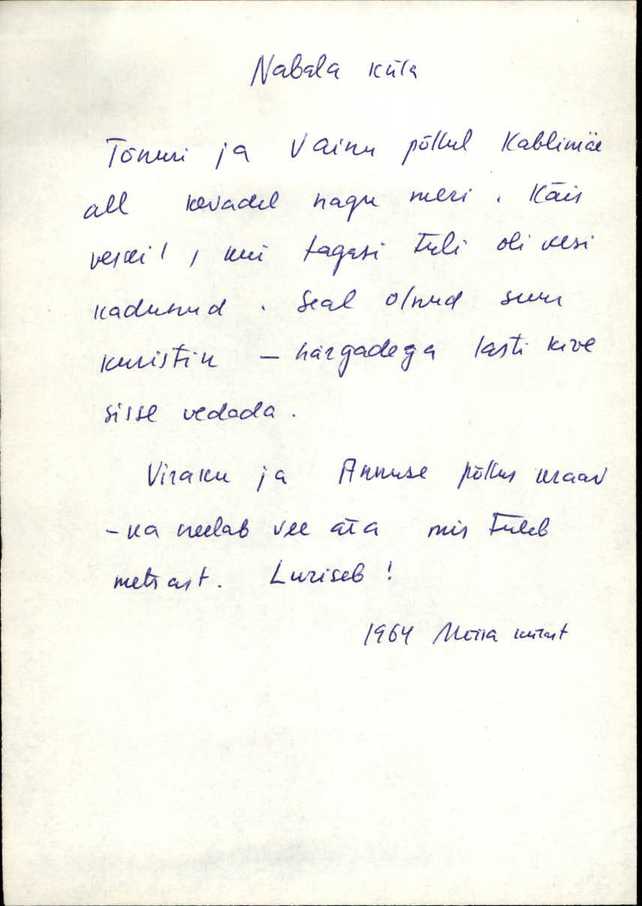 Nabala küla
Tõnuri ja Vainu põllul Kablimäe
all kevadel nagu meri. Käis
veskil, kui tagasi tuli oli vesi
kadunud. Seal olnud suur
kuristik – härgadega lasti kive
sisse vedada.
Viraku ja Annuse põllus kraav
– ka neelab vee ära mis tuleb
metsast. Luriseb!
1964 Mõisa külast